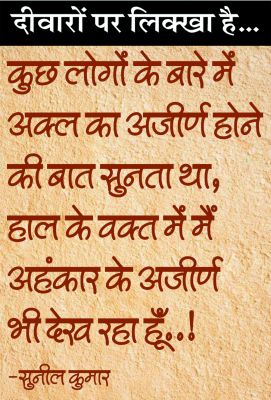 दीवारों पर लिक्खा है...
कुछ लोगों के बारे में
अक्ल का अजीर्ण होने
की बात सुनता था,
हाल के वक्त में मैं
अहंकार के अजीर्ण
भी देख रहा हूँ..!
-सुनील कुमार